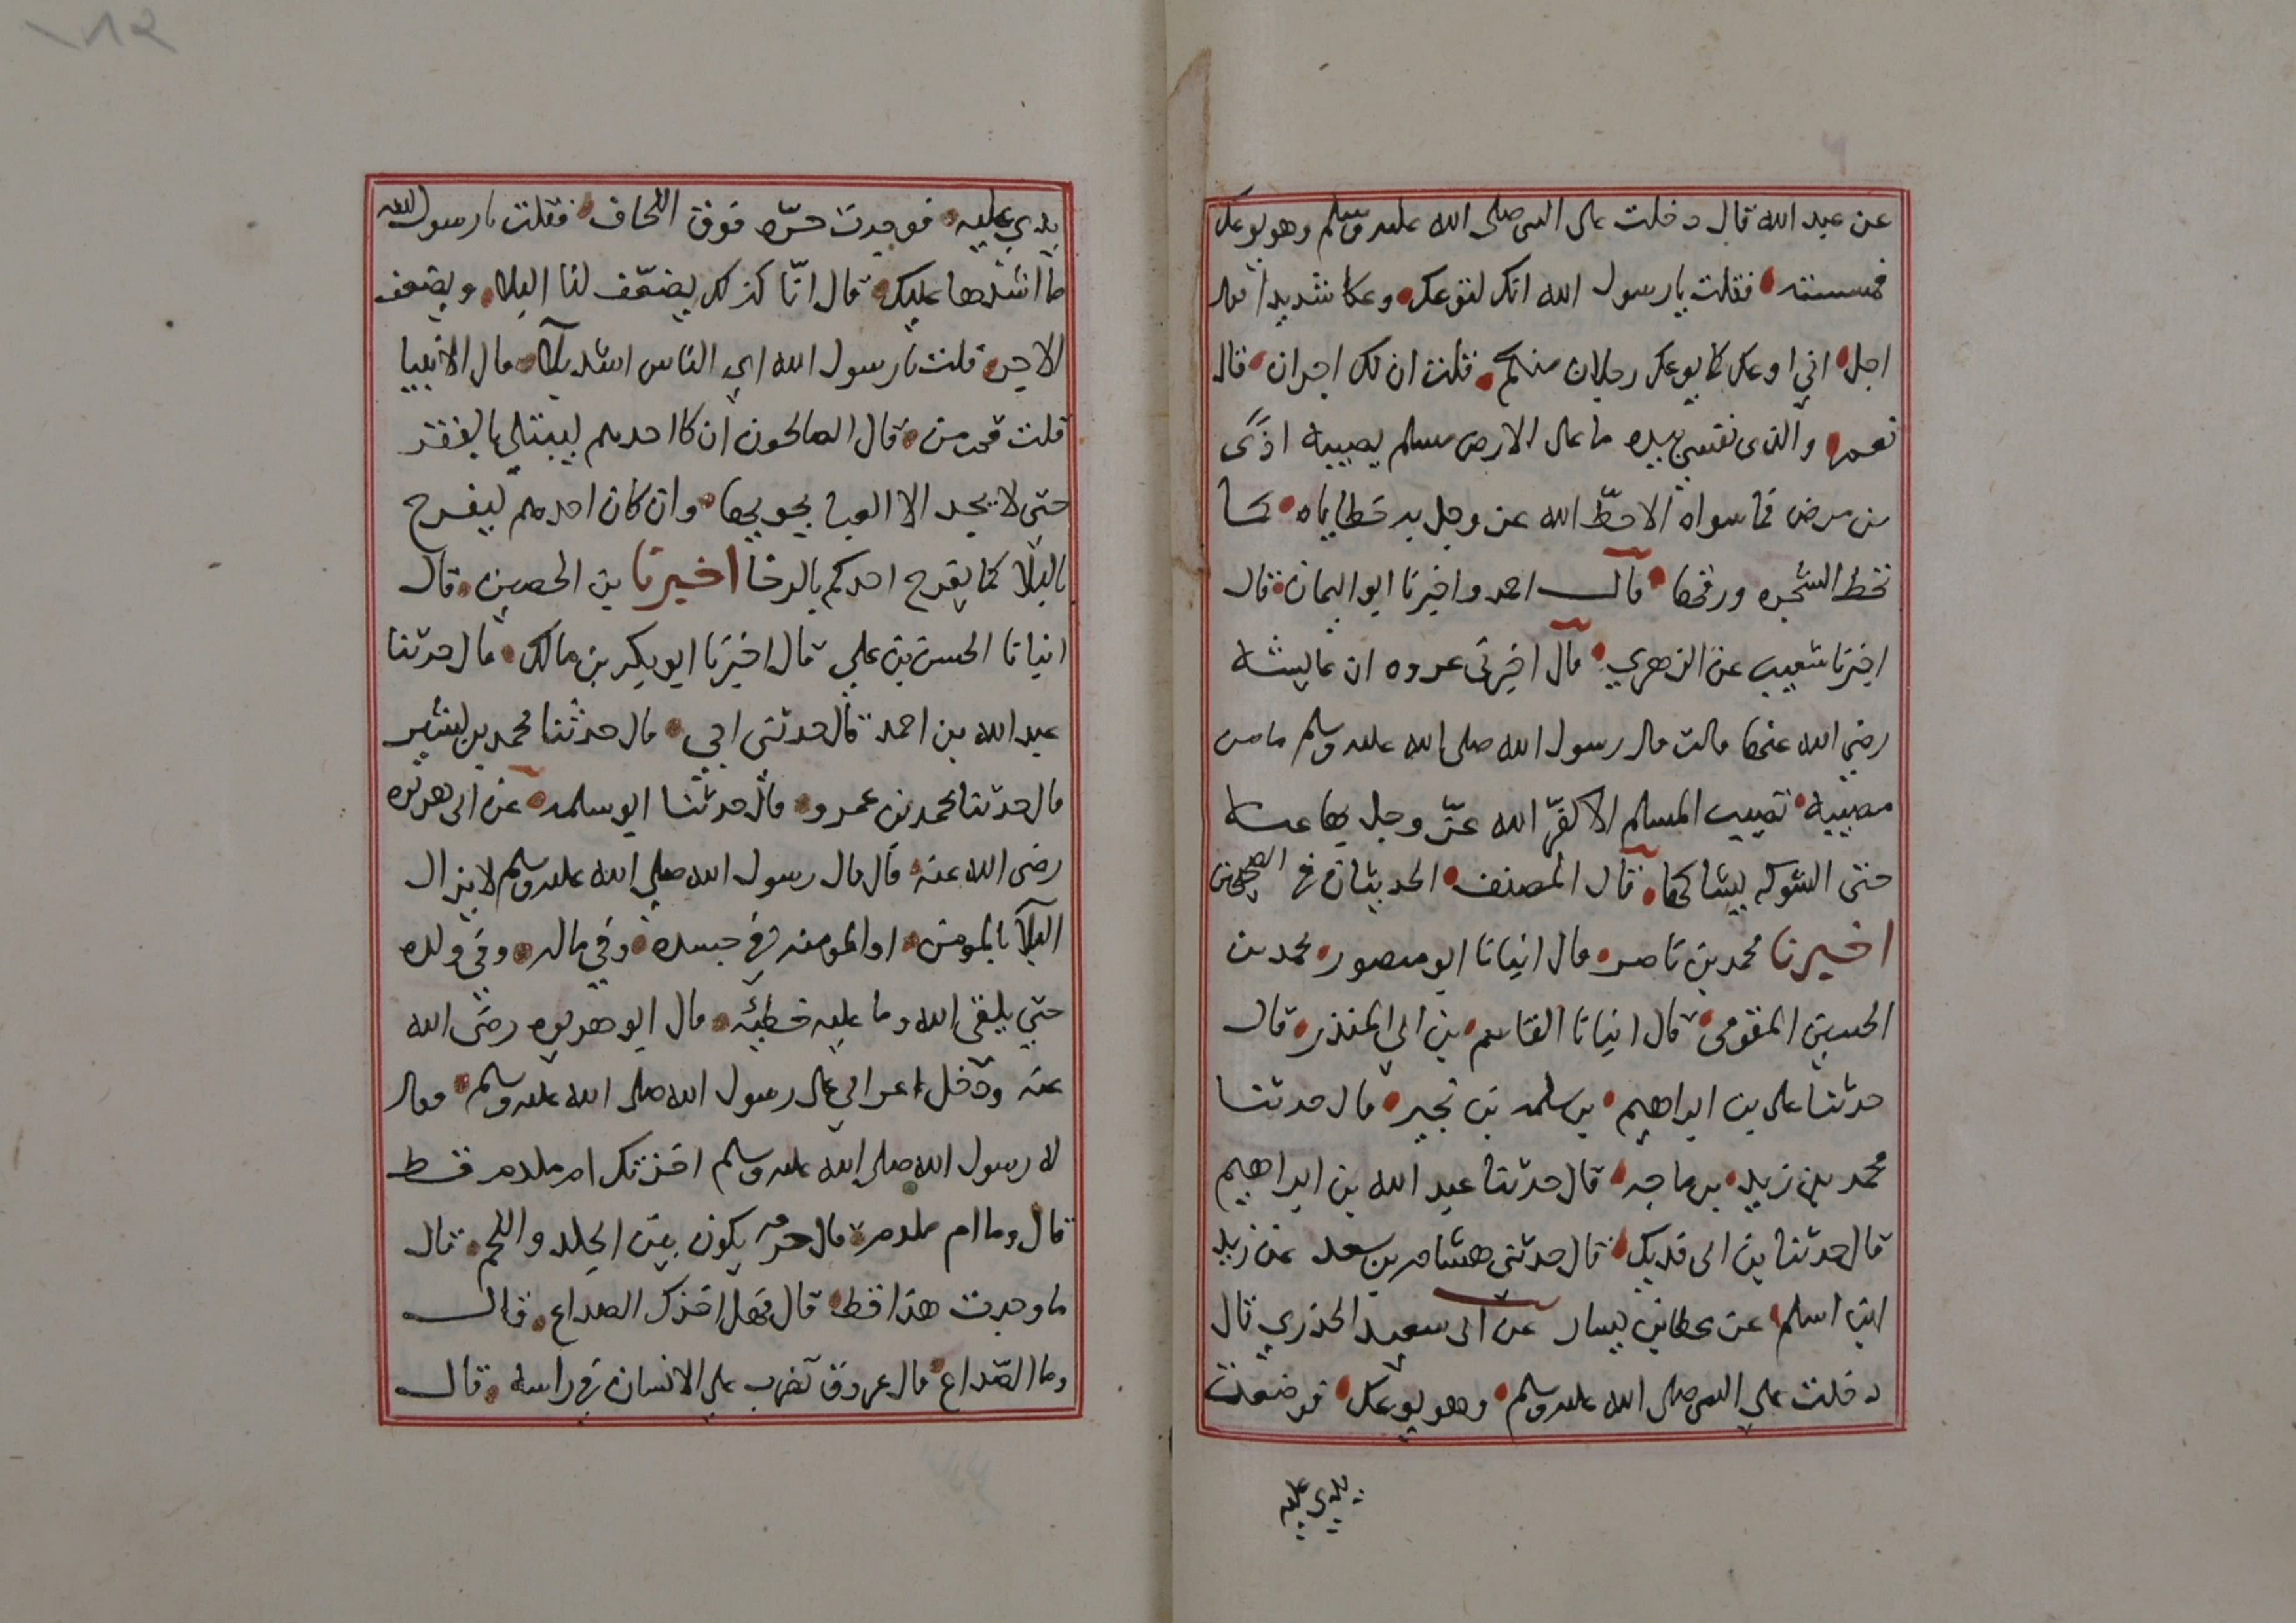 عن عبد الله قال دخلت على النبي صلى الله عليه وسلم وهو يوعك
فمسسته فقلت يا رسول الله انك لتوعك وعكا شديدا فقال
اجل اني اوعك كما يوعك رجلان منكم قلت ان لك اجران قال
نعم والذي نفسي بيده ما على الارض مسلم يصيبه اذًى
من مرض فما سواه الا حطّ الله عز وجل به خطاياه كما
تحط الشجره ورقها قال احمد واخبرنا ابو اليمان قال
اخبرنا شعيب عن الزهري قال اخبرني عروه ان عايشه
رضي الله عنها قالت قال رسول الله صلى الله عليه وسلم ما من
مصيبه تصيب المسلم الا كفّر الله عزّ وجل بها عنه
حتى الشوكه يشاكها قال المصنف الحديثان في الصحيحين
اخبرنا محمد بن ناصر قال انبانا ابو منصور محمد بن
الحسين المقومي قال انبانا القاسم بن ابي المنذر قال
حدثنا على بن ابراهيم بن سلمه بن بحير قال حدثنا
محمد بن زيد بن ماجه قال حدثنا عبد الله بن ابراهيم
قال حدثنا بن ابي فديك قال حدثني هشام بن سعد عن زيد
ابن اسلم عن عطا بن يسار عن ابي سعيد الخدري قال
دخلت علي النبي صلى الله عليه وسلم وهو يوعك فوضعت
يدي عليه
يدي عليه فوجدت حرّه فوق اللحاف فقلت يا رسول الله
ما اشدها عليك قال انّا كذلك يضعّف لنا البلا ويضعف
الاجر قلت يا رسول الله اي الناس اشد بلآ قال الانبيا
قلت ثم من قال الصالحون ان كا احدهم ليبتلي بالفقر
حتى لا يجد الا العبا يحويها وان كان احدهم ليفرح
بالبلا كما يفرح احدكم بالرخا اخبرنا بن الحصين قال
انبانا الحسن بن علي قال اخبرنا ابو بكر بن مالك قال حدثنا
عبد الله بن احمد قال حدثني ابي قال حدثنا محمد بن بشر
قال حدثنا محمد بن عمرو قال حدثنا ابو سلمه عن ابي هريره
رضي الله عنه قال قال رسول الله صلي الله عليه وسلم لا يزال
البلآ بالمومن او المومنه في جسده وفي ماله وفي ولده
حتي يلقى الله وما عليه خطيئه قال ابو هريره رضي الله
عنه ودخل اعرابي على رسول الله صلى الله عليه وسلم فقال
له رسول الله صلى الله عليه وسلم اخذتك ام ملدم قط
قال وما ام ملدم قال حر يكون بين الجلد واللحم قال
ما وجدت هذا قط قال فهل اخذك الصداع قال
وما الصّداع قال عروق تضرب علي الانسان في راسه قال